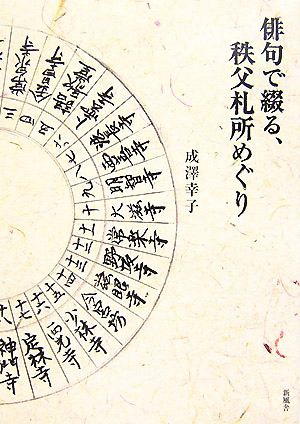 俳句で綴る、
秩父札所めぐり
成澤幸子
三
四 金昌寺
五
六
七 法長寺
八 西善寺
九 明智寺
十 大慈寺
十一 常楽寺
十二 野坂寺
十三 慈眼寺
十四 今宮坊
十五 少林寺
十六 西光寺
十七 定林寺
十八 神門寺
新風舎